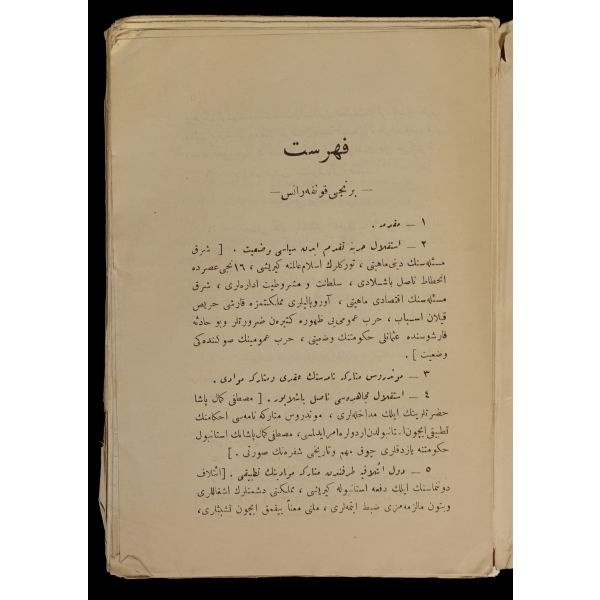 فهرست
— برنجی قونفه‌رانس —
۱ — مقدمه .
۲ — استقلال حربنه تقدم ایدن سیاسی وضعیت . [ شرق
مسئله‌سنك دینی ماهیتی ، توركلرك اسلام عالمنه كیریشی ، ۱٦ نجی عصرده
انحطاط ناصل باشلادی ، سلطنت و مشروطیت اداره‌لری ، شرق
مسئله‌سنك اقتصادی ماهیتی ، آوروپالیلری مملكتمزه قارشی حریص
قیلان اسباب ، حرب عمومی‌یی ظهوره كتیره‌ن ضرورتلر و بو حادثه
قارشوسنده عثمانلی حكومتنك وضعیتی ، حرب عمومینك صوكنده‌كی
وضعیت ] .
۳ — موندروس متاركه نامه‌سنك عقدی و متاركه موادی .
٤ — استقلال مجاهده‌سی ناصل باشلایور . [ مصطفی كمال پاشا
حضرتلرینك ایلك مداخله‌لری ، موندروس متاركه نامه‌سی احكامنك
تطبیقی ایچون استانبولدن اردولره امر ایدلمسی، مصطفی كمال پاشانك استانبول
حكومتنه یازدقلری چوق مهم و تاریخی شفره‌نك صورتی . ]
٥ — دول ائتلافیه طرفندن متاركه موادینك تطبیقی . [ ائتلاف
دونتماسنك ایلك دفعه استانبوله كیریشی ، مملكتی دشمنلرك اشغاللری
وبتون مالزمه‌مزی ضبط ایتمه‌لری ، ملتی معناً ییقمق ایچون تشبثلری،